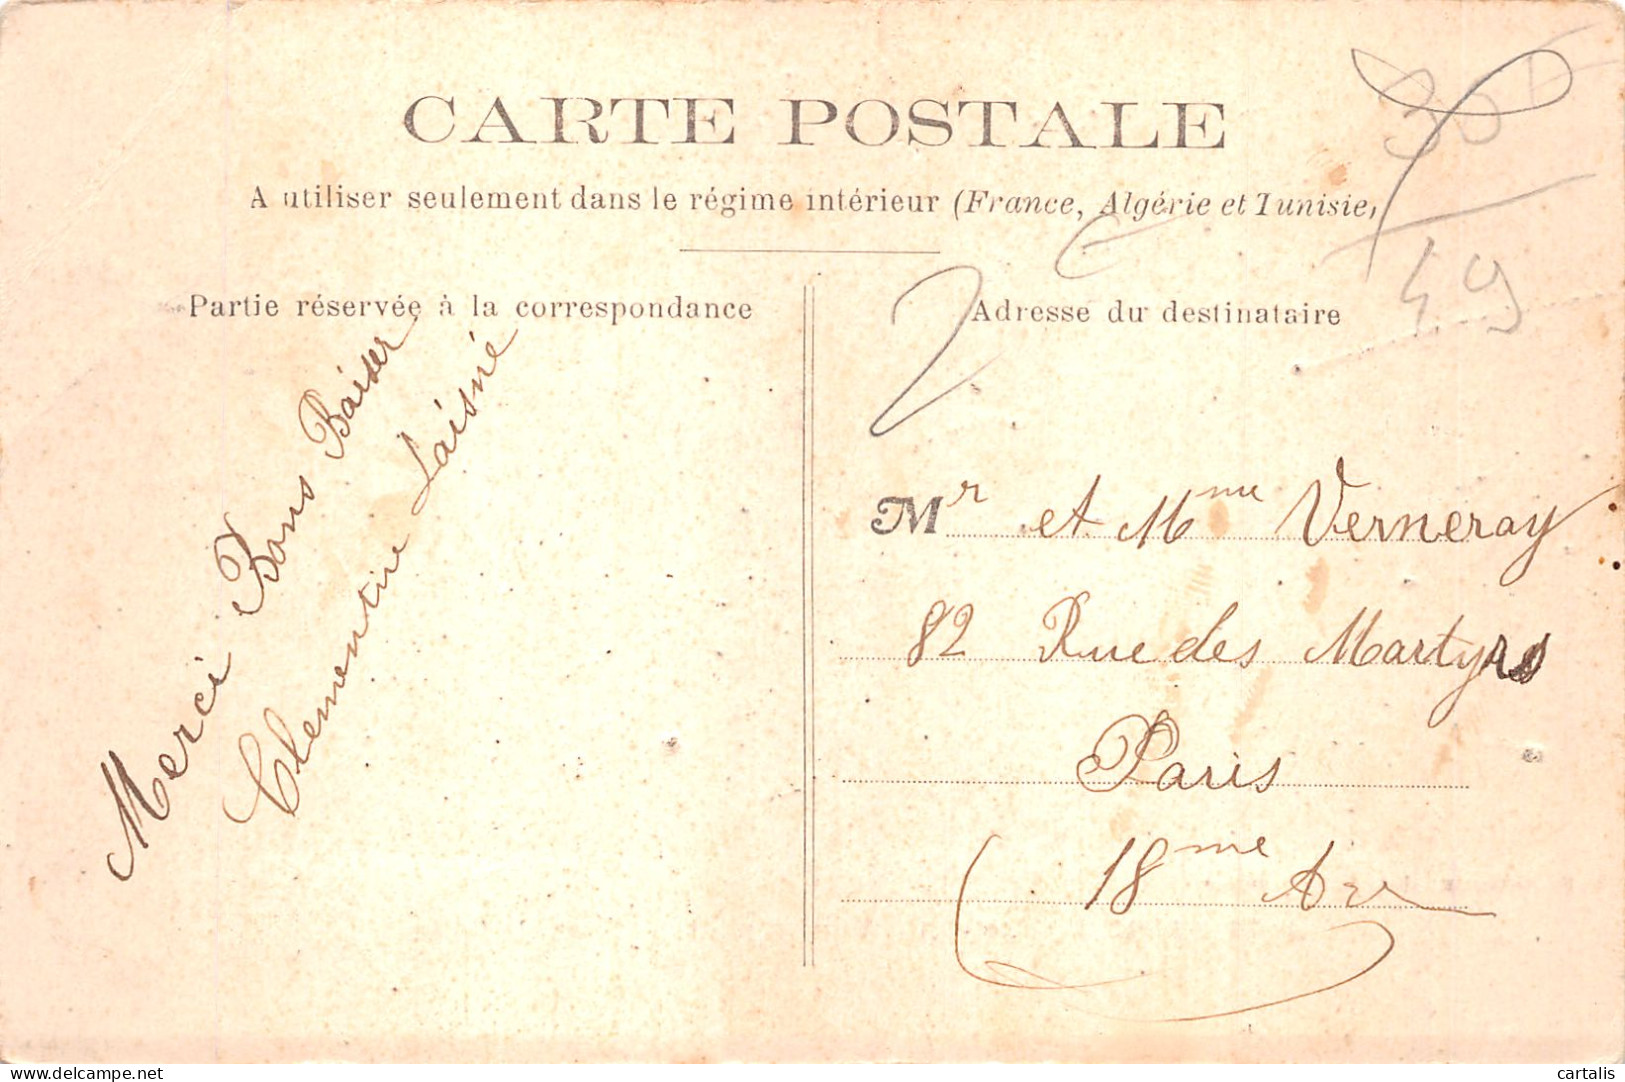 CARTE POSTALE
A utiliser seulement dans le régime intérieur (France, Algérie et Tunisie)
Partie réservée à la correspondance
Adresse du destinataire
30
49
Merci Bons Baiser
Clementine Laisné
Mr et Mme Verneray
82 Rue des Martyrs
Paris
18me Arr
delcampe.net
cartalis